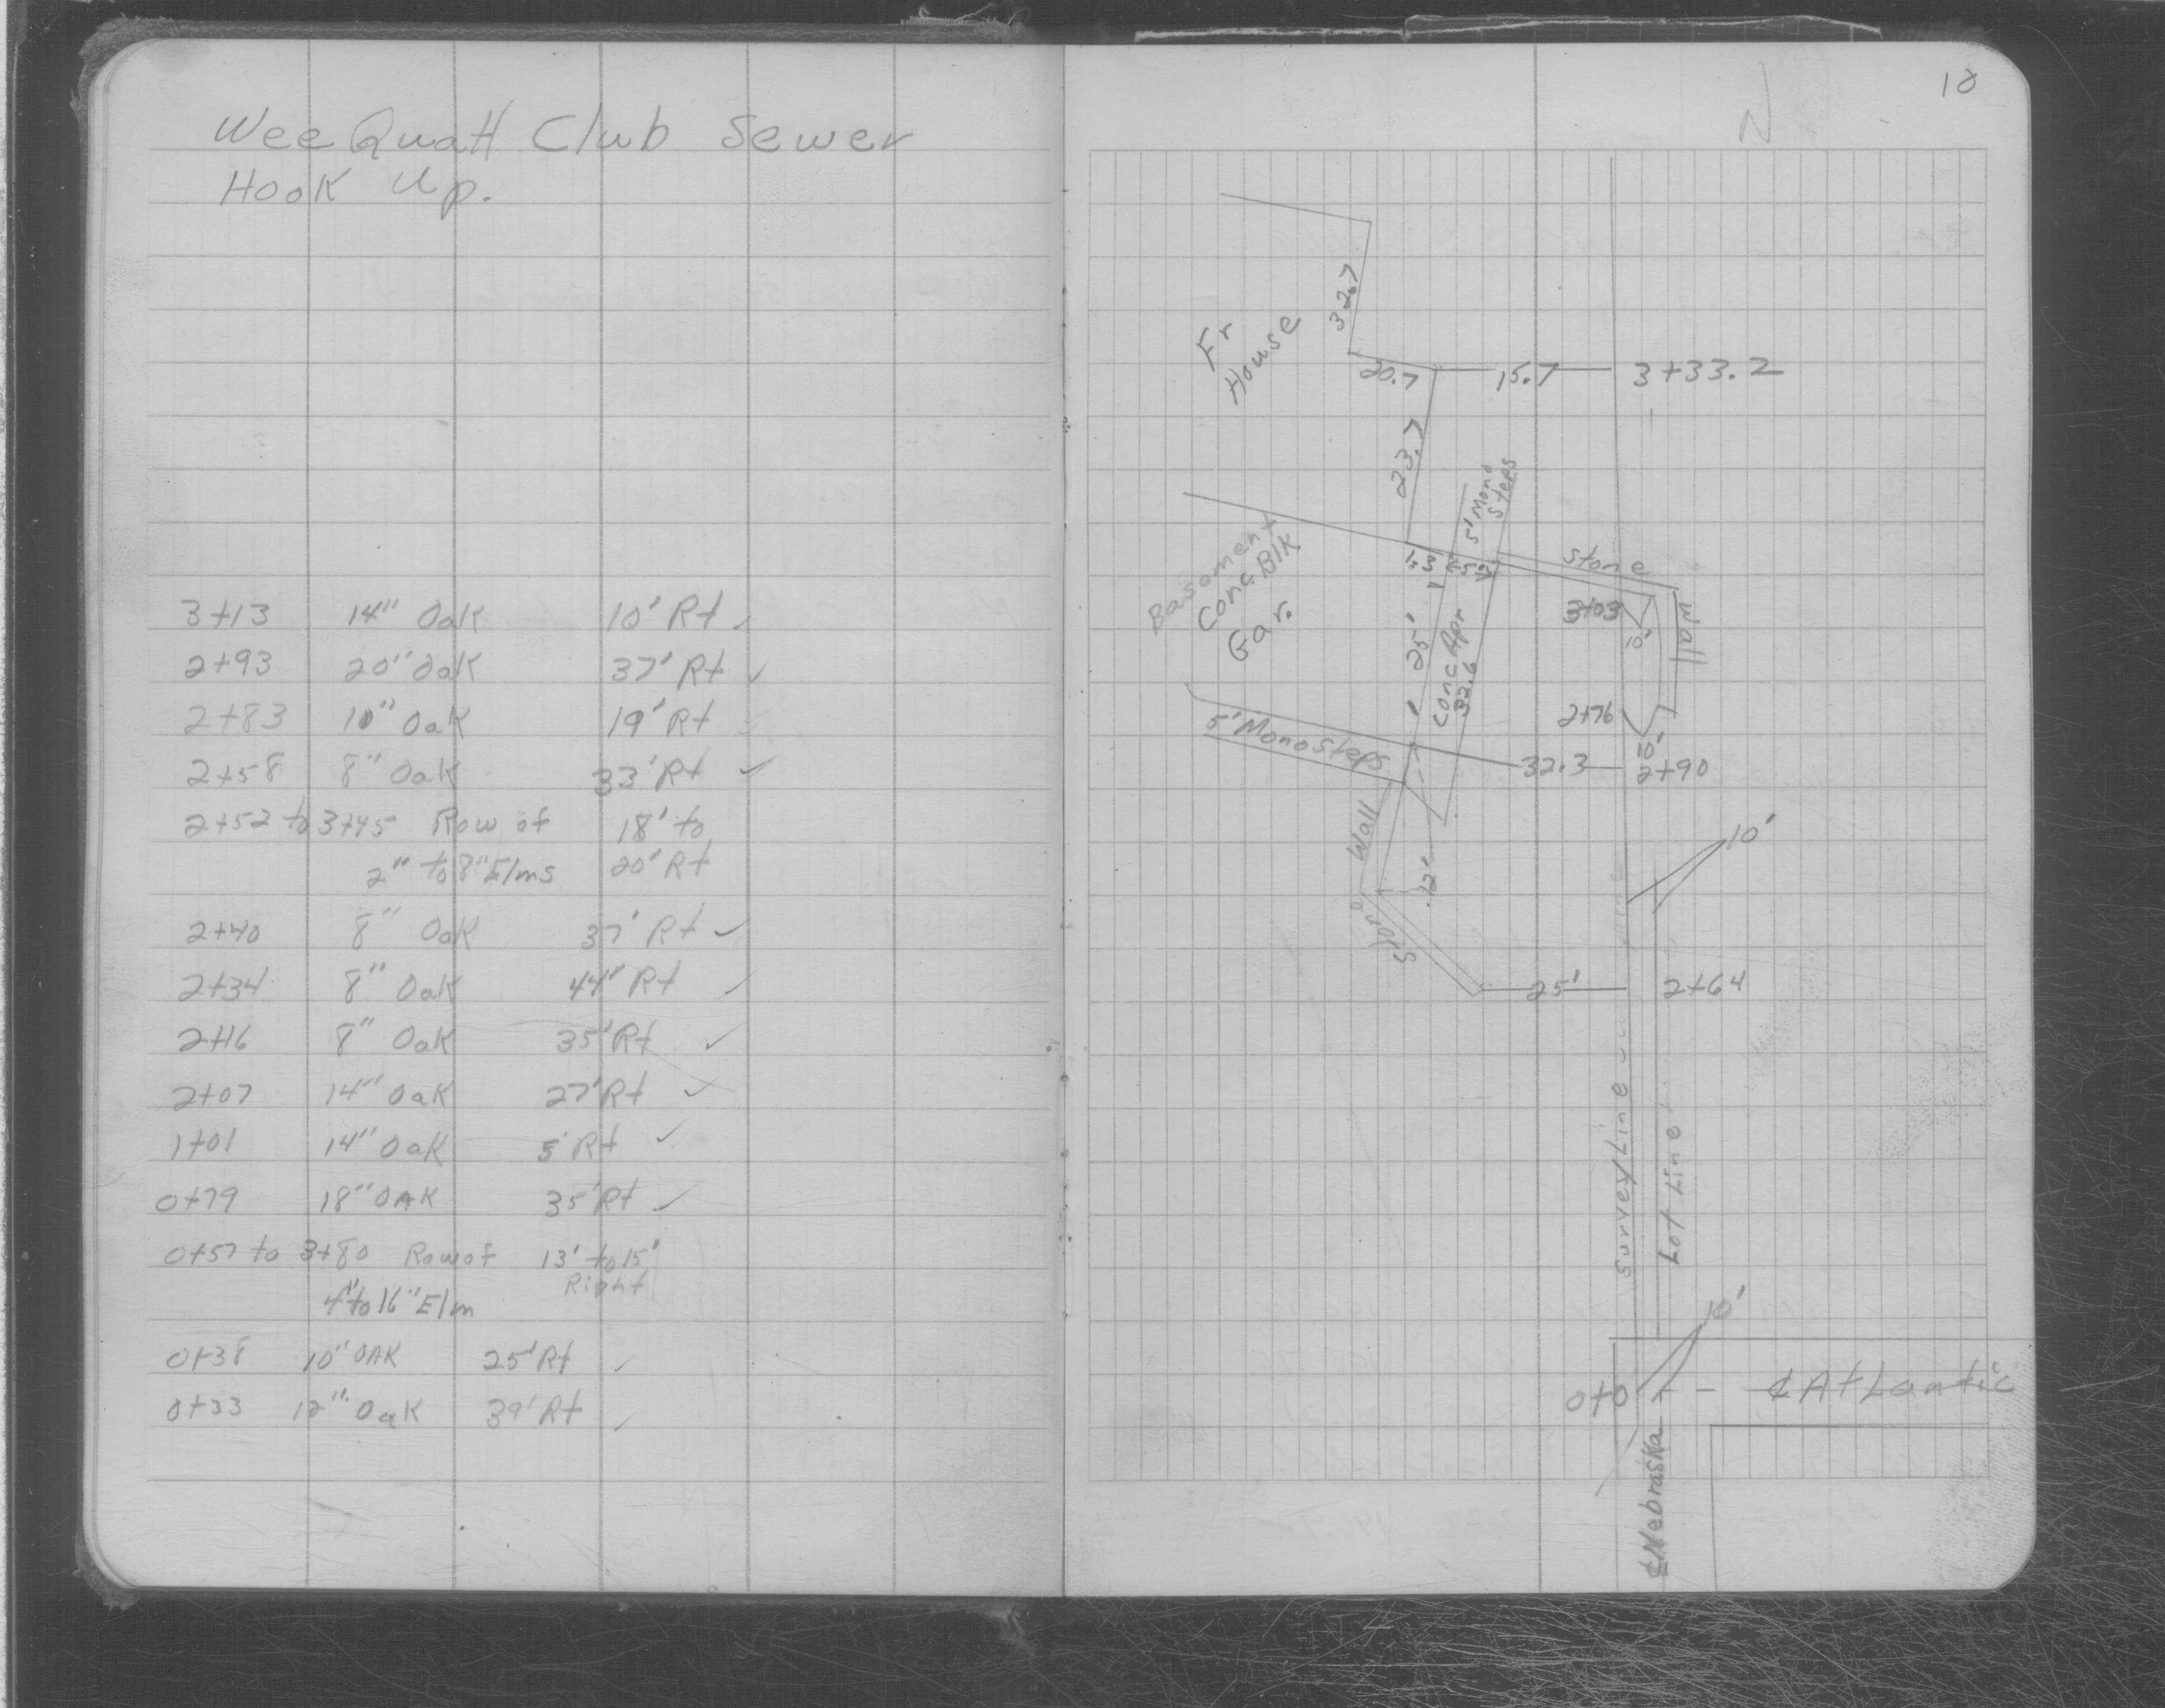 Wee Quatt Club Sewer
Hook Up.
3+13 14" Oak 10' Rt ✓
2+93 20" Oak 37' Rt ✓
2+83 10" Oak 19' Rt
2+58 8" Oak 33' Rt ✓
2+52 to 3+45 Row of 18' to
2" to 8" Elms 20' Rt
2+40 8" Oak 37' Rt ✓
2+34 8" Oak 44' Rt ✓
2+16 8" Oak 35' Rt ✓
2+07 14" Oak 27' Rt ✓
1+01 14" Oak 5' Rt ✓
0+79 18" OAK 35' Rt ✓
0+57 to 3+80 Row of 13' to 15'
Right
4" to 16" Elm
0+38 10" OAK 25' Rt ✓
0+33 12" Oak 39' Rt ✓
18
N
32.7
Fr
House
20.7 15.7 3+33.2
23.7
5' Mono
Steps
Stone
Basement
Conc Blk
Gar.
25'
Conc Apr
32.6
3+03
10'
Wall
2+76
10'
5' Mono Steps
32.3 2+90
Wall
10'
12'
Stone
25' 2+64
Survey Line
Lot Line
10'
0+0 ℄ Atlantic
℄ Nebraska